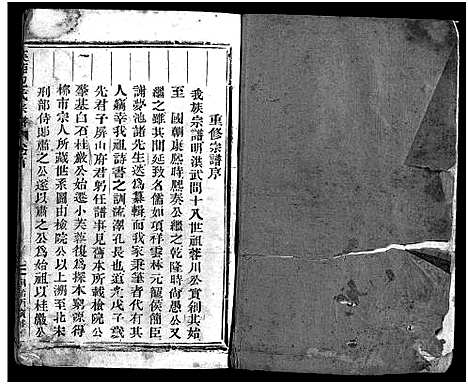 重修宗譜序
我族宗譜明洪武間十八世祖蓉川公實創其始
至　國朝康熙時熙奏公繼之乾隆時尚愚公又
繼之雖其間延致名儒如項祥雲林元龍侯簡臣
謝夢池諸先生迭爲纂輯而我家秉筆者代有其
人竊幸我祖詩書之訓流澤孔長也道光戊子歲
先君子屏山府君躬任譜事見舊本所載檢院公
肇基白石桂巖公始遷小芙蓉復爲探本窮源得
柳市宗人所藏世系圖由檢院公以上溯至北宋
刑部侍郎肅之公遂以肅之公爲始祖以桂巖公